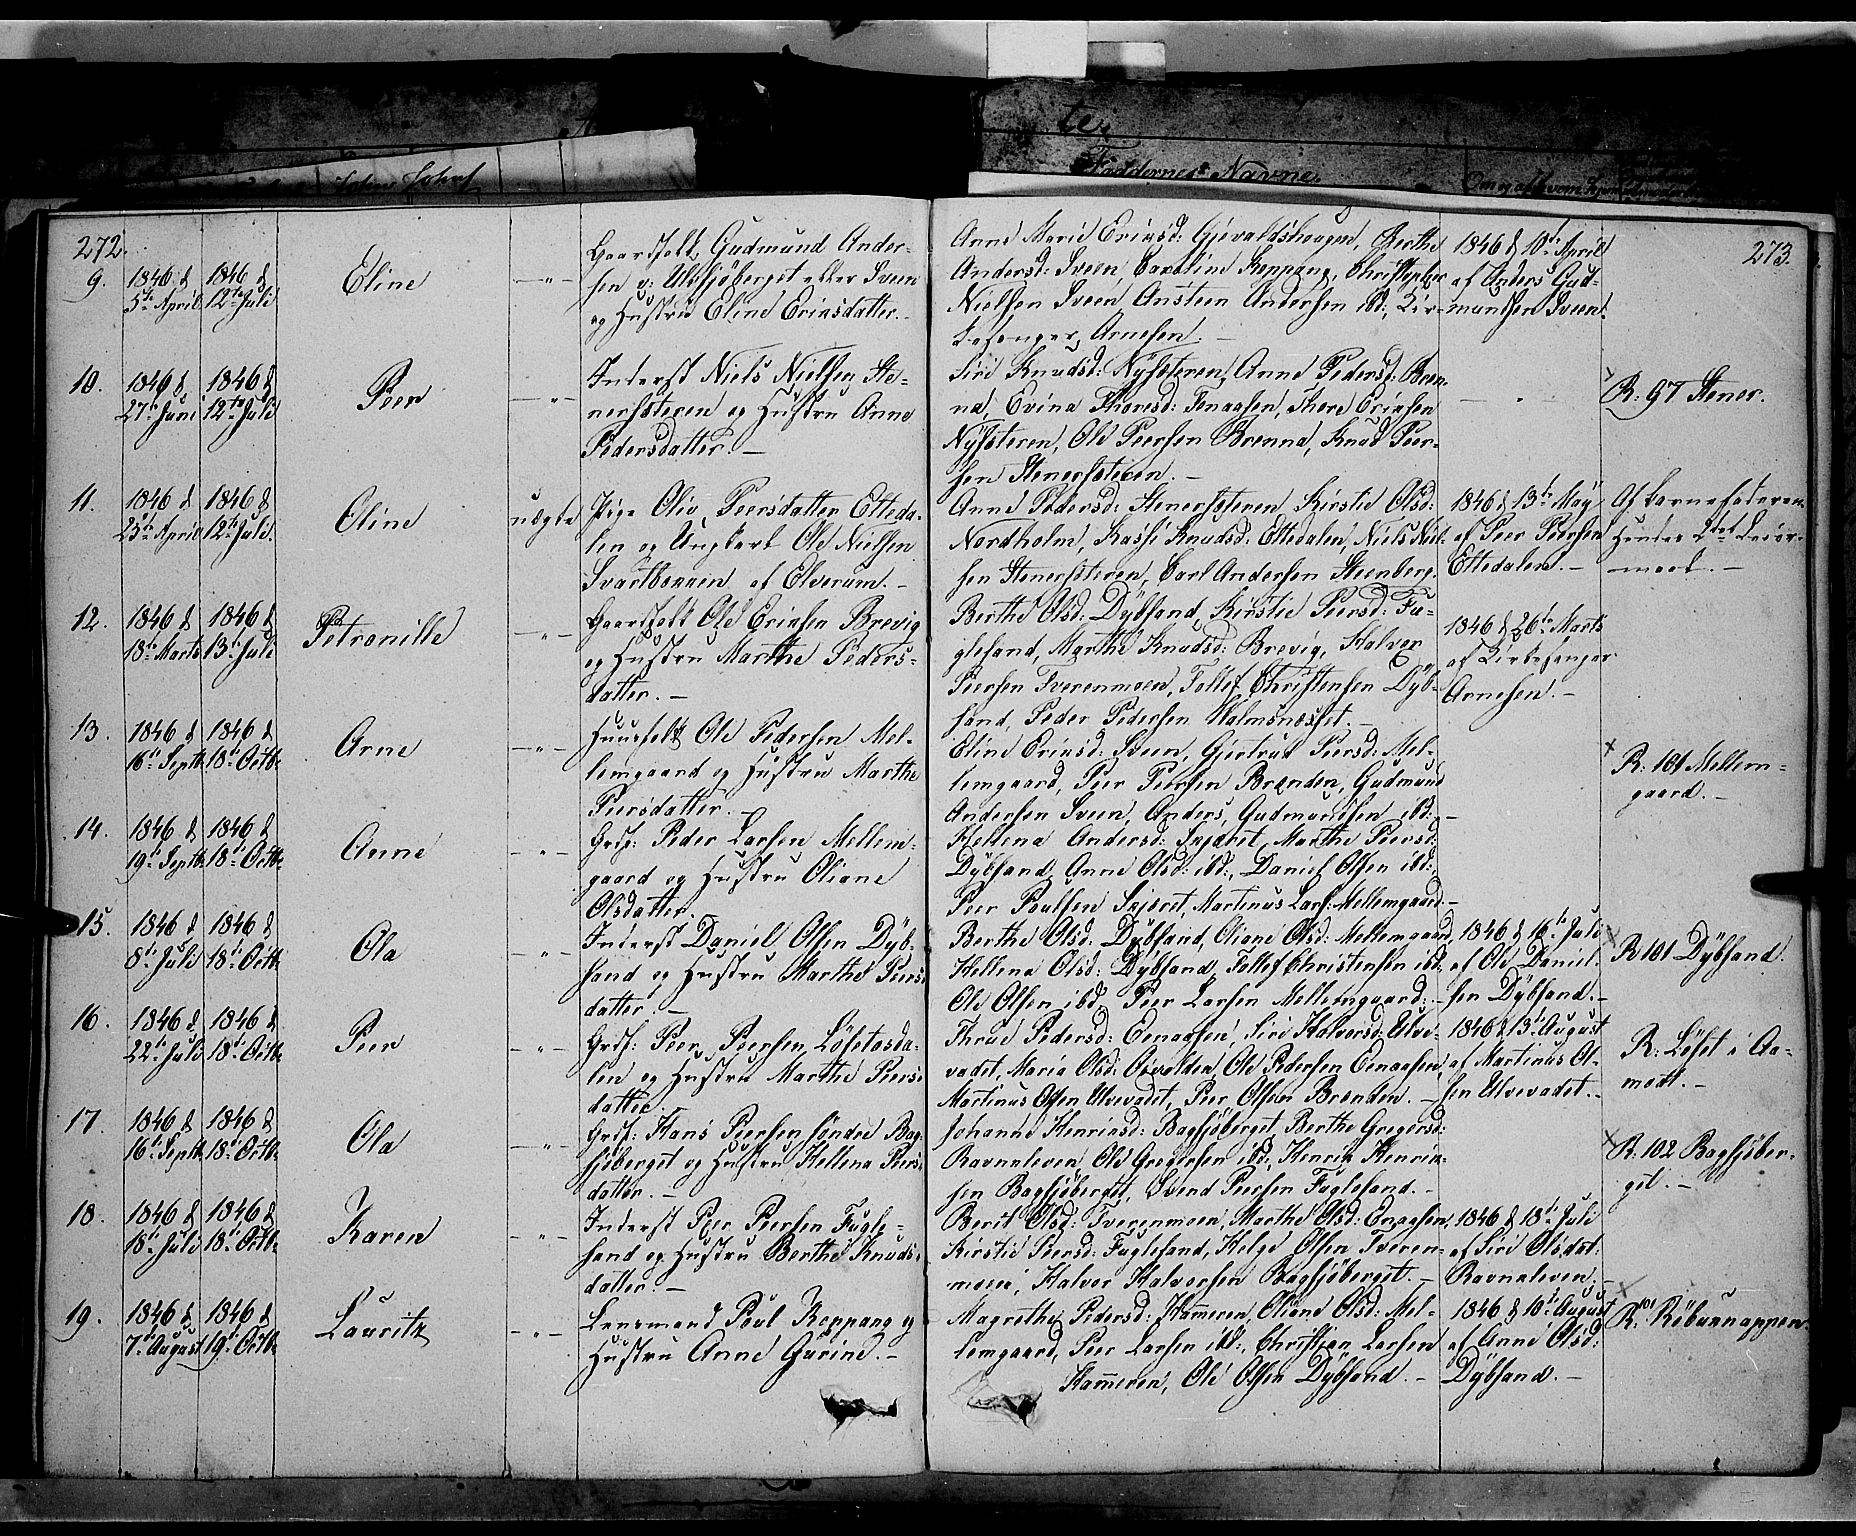 te,
Faddernes Navne
272.
273.
9.
1846 d
5te April
1846 d
12te Juli
Eline
—"—
Huusfolk, Gudmund Ander-
sen v: Ulvsjöberget eller Sveen
og Hustru Eline Eriksdatter.-
Anne Marie Eriksd: Gjevaldshaugen, Berthe
Andersd: Sveen, Caroline Koppang, Christopher
Nielsen Sveen, Ansteen Andersen ibd:, Kir-
kesanger Arnesen. -
1846 d 10de April
af Anders Gud-
mundsen Sveen.
10.
1846 d
27de Juni
1846 d
12te Juli
Peer
—"—
Inderst Niels Nielsen Ste-
nersæteren og Hustru Anne
Pedersdatter. -
Siri Knudsd: Nysæteren, Anne Pedersd: Bren-
na, Evina Thoresd: Enaasen, Thore Eriksen
Nysæteren, Ole Peersen Brenna, Knud Peer-
sen Stenersæteren. -
R: 97 Stener.
11.
1846 d
25de April
1846 d
12te Juli
Eline
uægte
Pige Oliv Peersdatter Etteda-
len og Ungkarl Ole Nielsen
Svartbonnen af Elverum. -
Anne Pedersd: Stenersæteren, Kirstie Olsd:
Nordholm, Kasse Knudsd: Ettedalen, Niels Niel-
sen Stenersæteren, Carl Andersen Steenberg.
1846 d 13de May
af Peer Peersen
Ettedalen. -
Af Barnefaderen
Hendes 2det Leier-
maal. -
12.
1846 d
18de Marts
1846 d
13de Juli
Petronille
—"—
Huusfolk Ole Eriksen Brevig
og Hustru Marthe Peders-
datter. -
Berthe Olsd: Dybsand, Kirstie Peersd: Fu-
glesand, Marthe Knudsd: Brevig, Halvor
Peersen Tverenmoen, Tollef Christensen Dyb-
sand, Peder Pedersen Malmsnæsset. -
1846 d 26de Marts
af Kirkesanger
Arnesen. -
13.
1846 d
16de Septb.
1846 d
18de Octb.
Arne
—"—
Huusfolk Ole Pedersen Mel-
lemgaard og Hustru Marthe
Peersdatter. -
Eline Eriksd: Sveen, Gjertrud Peersd: Mel-
lemgaard, Peer Peersen Brænden, Gudmund
Andersen Sveen, Anders Gudmundsen ibd: -
R: 101 Mellem-
gaard. -
14.
1846 d
19de Septb.
1846 d
18de Octb.
Anne
—"—
Grdf: Peder Larsen Mellem-
gaard og Hustru Oliane
Olsdatter.
Hellena Andersd: Skjæret, Marthe Peersd:
Dybsand, Anne Olsd: ibd:, Daniel Olsen ibd:,
Peer Poulsen Skjæret, Martinus Lars: Mellemgaard. -
15.
1846 d
8de Juli
1846 d
18de Octb.
Ola
—"—
Inderst Daniel Olsen Dyb-
sand og Hustru Marthe Peers-
datter. -
Berthe Olsd: Dybsand, Oliane Olsd: Mellemgaard,
Hellena Olsd: Dybsand, Tollef Christensen ibd:
Ole Olsen ibd: Peer Larsen Mellemgaard. -
1846 d 16de Juli
af Ole Daniel-
sen Dybsand. -
R 101 Dybsand.
16.
1846 d
22de Juli
1846 d
18de Octb.
Peer
—"—
Grdf: Peer Peersen Löfetasda-
len og Hustru Marthe Peers-
datter.
Thrue Pedersd: Enaasen, Siri Halvorsd: Ulve-
vadet, Maria Olsd: Ole Pedersen Enaasen,
Martinus Olsen Ulvevadet, Peer Olsen Brænden. -
1846 d 13de August
af Martinus Ol-
sen Ulvevadet. -
R: Löset i Aa-
modt. -
17.
1846 d
16de Septb.
1846 d
18de Octb.
Ola
—"—
Grdf: Hans Peersen söndre Bag-
sjöberget og Hustru Hellena Peers-
datter. -
Johanne Henriksd: Bagsjöberget, Berthe Gregersd:
Ravnaleven, Ole Gregersen ibd:, Henrik Henrik-
sen Bagsjöberget, Svend Peersen Fuglesand. -
R: 102 Bagsjöber-
get. -
18.
1846 d
18de Juli
1846 d
18de Octb.
Karen
—"—
Inderst Peer Peersen Fugle-
sand og Hustru Berthe Knuds-
datter. -
Berit Olsd: Tverenmoen, Marthe Olsd: Enaasen,
Kirstie Peersd: Fuglesand, Helge Olsen Tveren-
moen, Halvor Halvorsen Bagsjöberget. -
1846 d 18de Juli
af Siri Olsdat:
Ravnaleven. -
19.
1846 d
7de August
1846 d
19de Octb.
Lauritz
—"—
Lensmand Poul Koppang og
Hustru Anne Gurine. -
Magrethe Pedersd: Hammeren, Oliane Olsd: Mel-
lemgaard, Peer Larsen ibd:, Christian Larsen
Hammeren, Ole Olsen Dybsand. -
1846 d 10de August
af Anne Olsd:
Dybsand. -
R: 101 Röbunnappen.